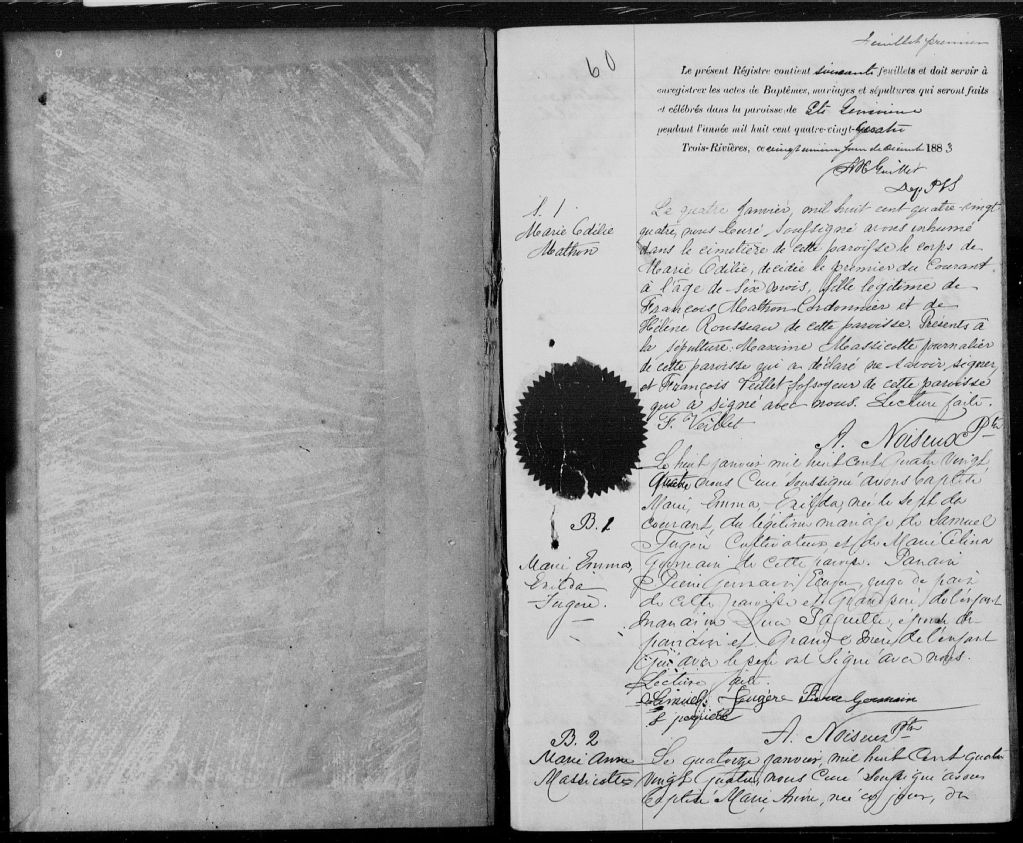 feuillet premier
60
Le présent Régistre contient soixante feuillets et doit servir à
enregistrer les actes de Baptêmes, mariages et sépultures qui seront faits
et célébrés dans la paroisse de Ste Geneviève
pendant l'année mil huit cent quatre-vingt-Quatre
Trois-Rivières, ce vingt unieme jour de décembre 1883
Guillet
Dep P S
S. 1
Marie Odilie
Mathon
Le quatre Janvier, mil huit cent quatre-vingt
quatre, nous Curé soussigné avons inhumé
dans le cimetière de cette paroisse le corps de
Marie Odilée, décédée le premier du Courant
à l'âge de six mois, fille légitime de
François Mathon Cordonnier et de
Hélène Rousseau de cette paroisse. Présents à
la sépulture: Maxime Massicotte journalier
de cette paroisse qui a déclaré ne savoir signer,
et François Veillet fossoyeur de cette paroisse
qui à signé avec nous. Lecture faite.
F. Veillet
A. Noiseux Ptre
B. 1
Marie Emma
Exilda
Fugère.
Le huit janvier mil huit cent quatre vingt
Quatre nous Curé soussigné avons baptisé
Marie, Emma-Exilda, née le sept du
courant, du légitime mariage de Samuel
Fugère Cultivateur, et de Marie Célina
Germain de cette paroisse. Parrain
Pierre Germain, Ecuyer, juge de paix
de cette paroisse et Grand père de l'enfant
marraine Luce Paquette, épouse du
parrain et Grande mère de l'enfant
Qui avec le père ont signé avec nous.
Lecture faite.
Samuel Fugère Pierre Germain
A. Noiseux Ptre
B. 2
Marie Anne
Massicotte
Le quatorze janvier, mil huit Cent quatre
vingt Quatre, nous Curé soussigné avons
baptisé Marie, Anne, née ce jour, du